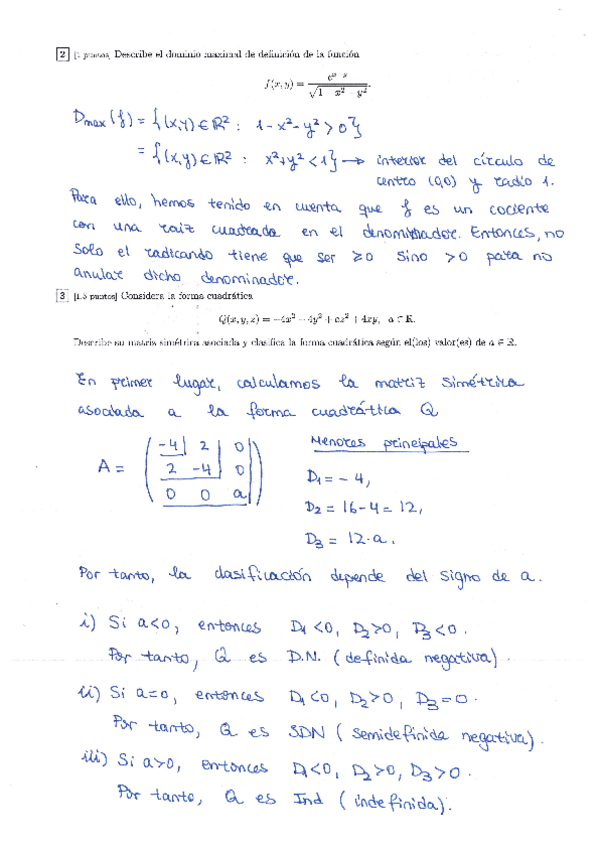 2 [1 puntos] Describe el dominio maximal de definición de la función
f(x, y) = e^{x-y} / √(1 - x² - y²).
Dmax (f) = {(x,y) ∈ ℝ² : 1-x²-y² > 0}
= {(x,y) ∈ ℝ² : x²+y² < 1} → interior del círculo de
centro (0,0) y radio 1.
Para ello, hemos tenido en cuenta que f es un cociente
con una raíz cuadrada en el denominador. Entonces, no
solo el radicando tiene que ser ≥0 sino >0 para no
anular dicho denominador.
3 [1.5 puntos] Considera la forma cuadrática
Q(x, y, z) = -4x² - 4y² + az² + 4xy, a ∈ ℝ.
Describe su matriz simétrica asociada y clasifica la forma cuadrática según el(los) valor(es) de a ∈ ℝ.
En primer lugar, calculamos la matriz simétrica
asociada a la forma cuadrática Q
A = ( -4 2 0
2 -4 0
0 0 a )
Menores principales
D₁ = -4,
D₂ = 16-4 = 12,
D₃ = 12·a.
Por tanto, la clasificación depende del signo de a.
i) Si a<0, entonces D₁<0, D₂>0, D₃<0.
Por tanto, Q es D.N. (definida negativa).
ii) Si a=0, entonces D₁<0, D₂>0, D₃=0.
Por tanto, Q es SDN (semidefinida negativa).
iii) Si a>0, entonces D₁<0, D₂>0, D₃>0.
Por tanto, Q es Ind (indefinida).